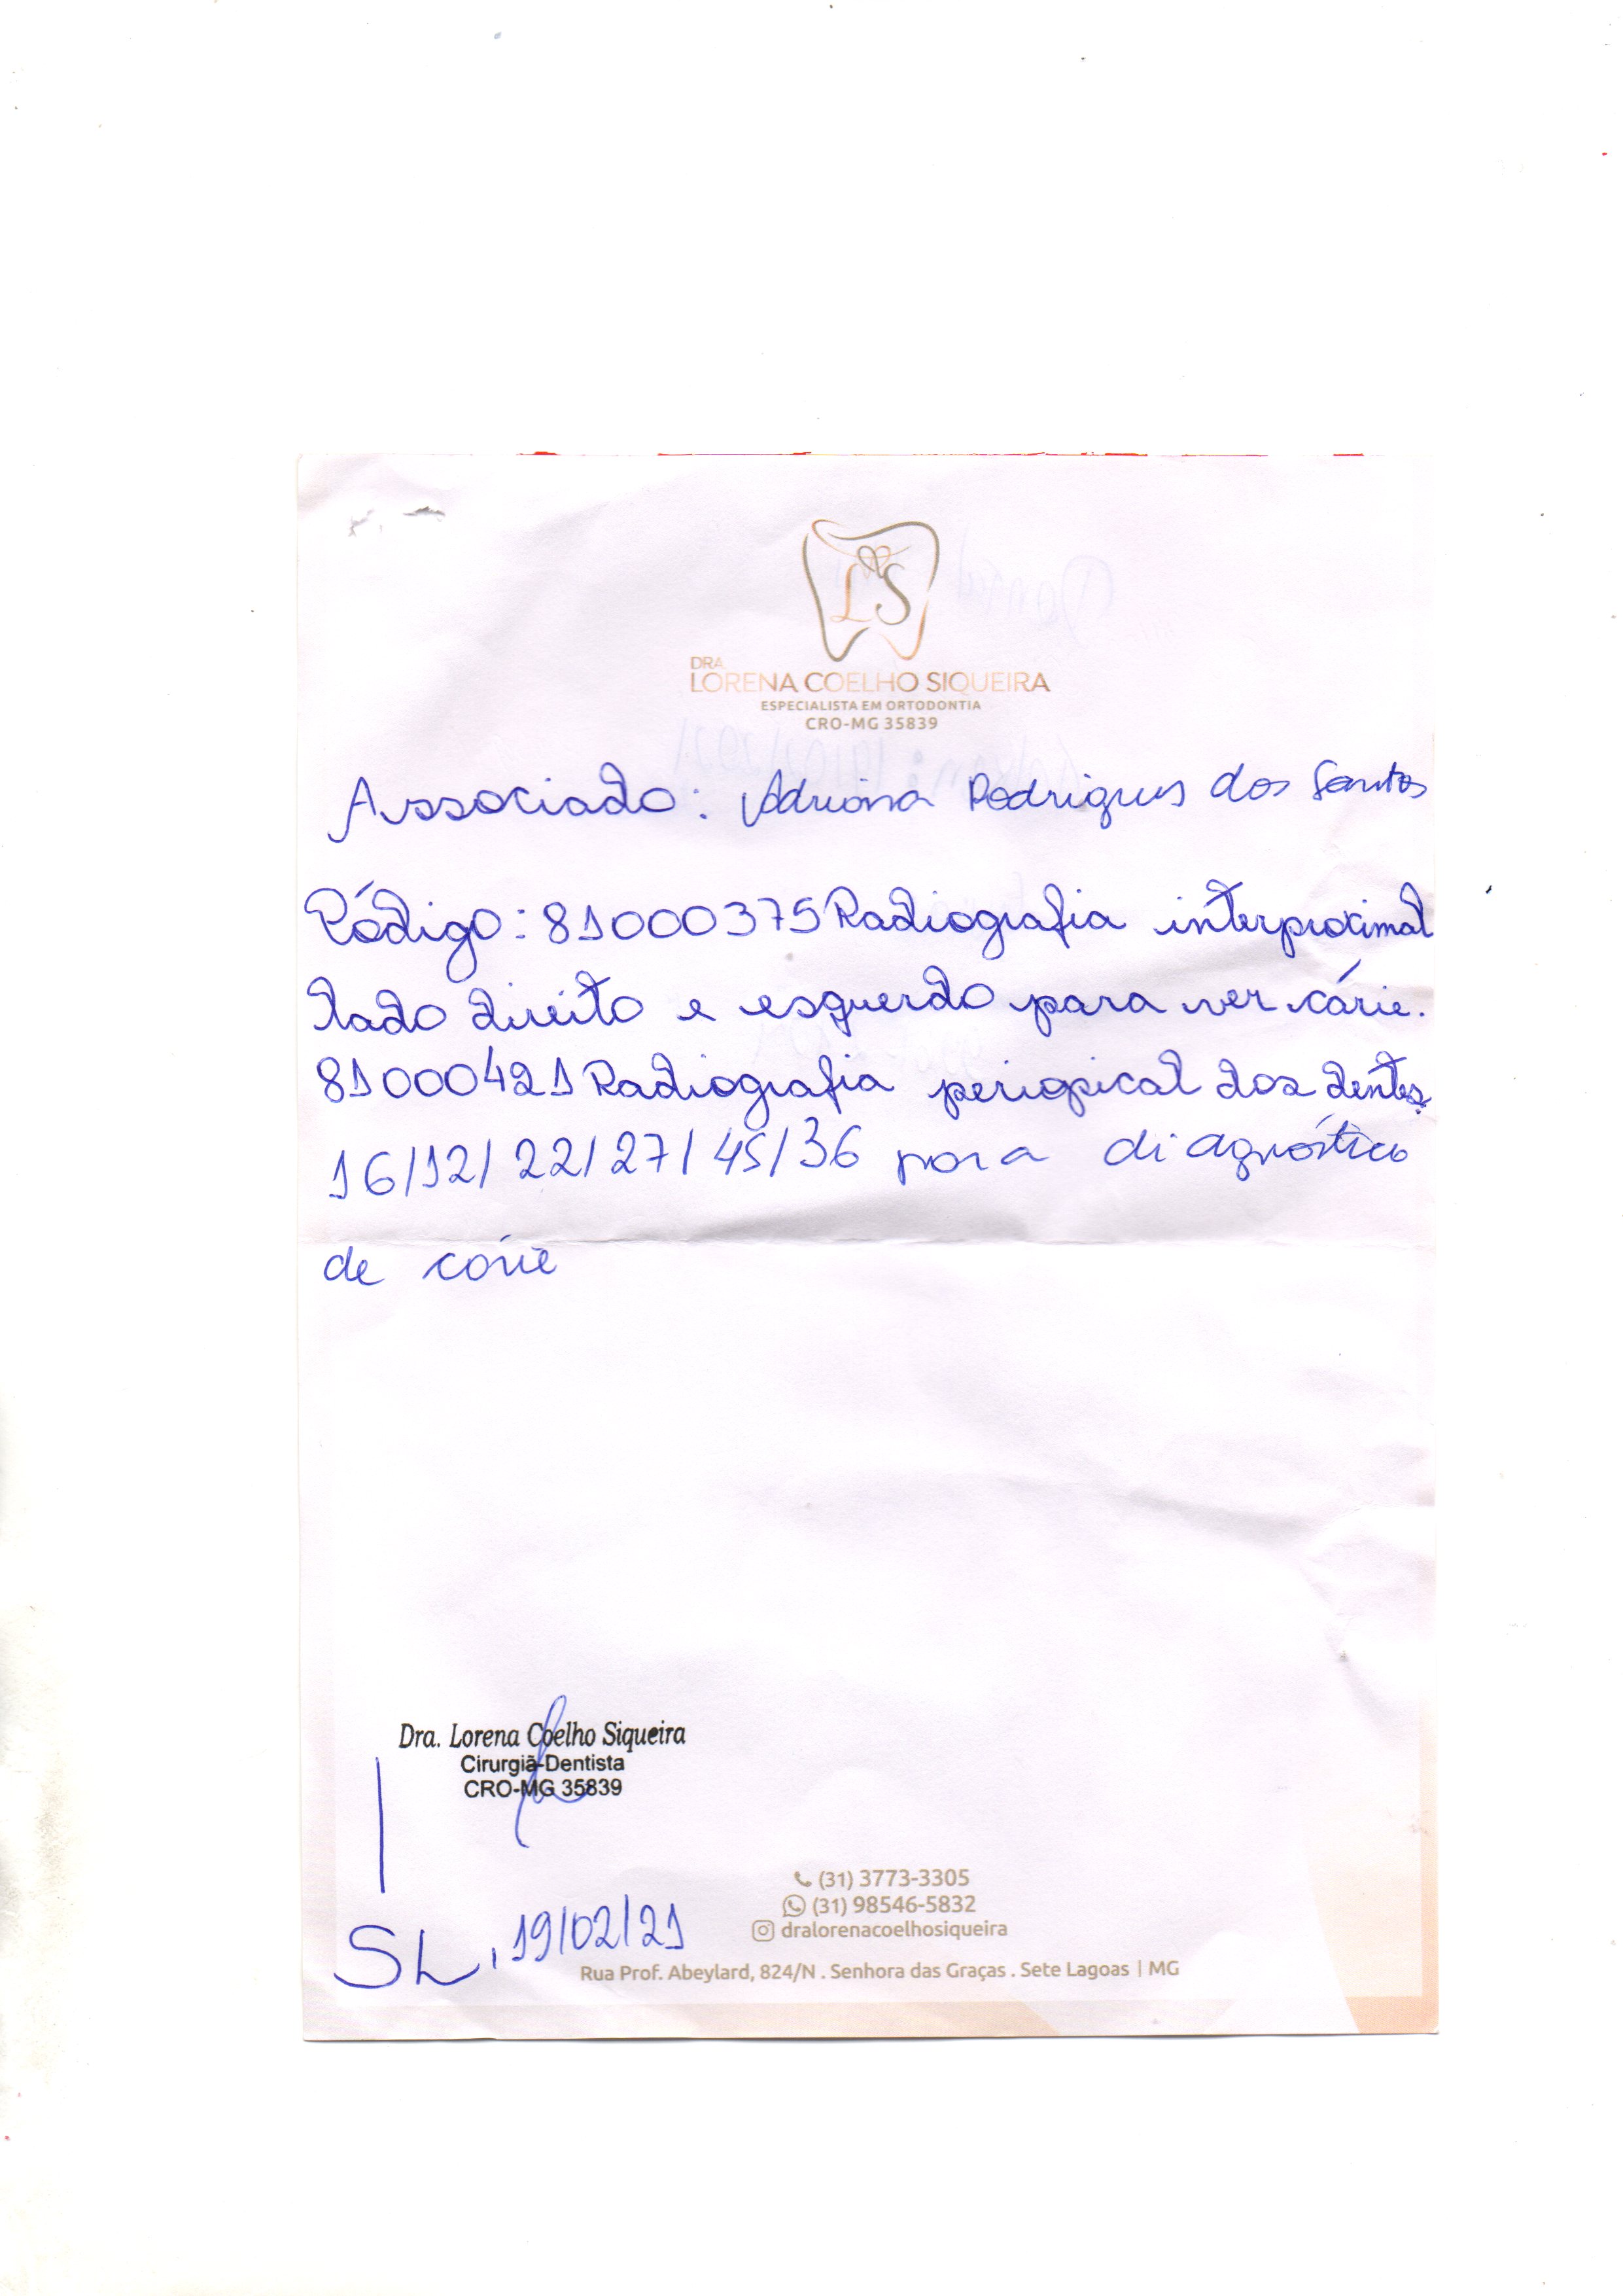 LS
DRA.
LORENA COELHO SIQUEIRA
ESPECIALISTA EM ORTODONTIA
CRO-MG 35839
Associado: Adriana Rodrigues dos Santos
Código: 81000375 Radiografia interproximal
lado direito e esquerdo para ver cárie.
81000421 Radiografia periapical dos dentes
16/12/22/27/45/36 para diagnóstico
de cárie
Dra. Lorena Coelho Siqueira
Cirurgiã-Dentista
CRO-MG 35839
(31) 3773-3305
(31) 98546-5832
dralorenacoelhosiqueira
SL, 19/02/21
Rua Prof. Abeylard, 824/N . Senhora das Graças . Sete Lagoas | MG